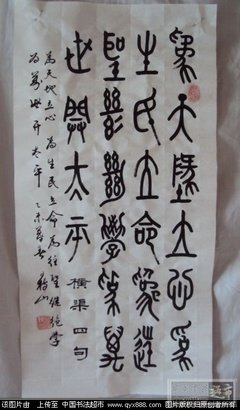 為天地立心為
生民立命為往
聖繼絕學為萬
世開太平
橫渠四句
為天地立心為生民立命為往聖繼絕學
為萬世开太平 乙未
该图片由: 上传至 中国书法超市 www.qyx888.com 图片版权归原创者所有